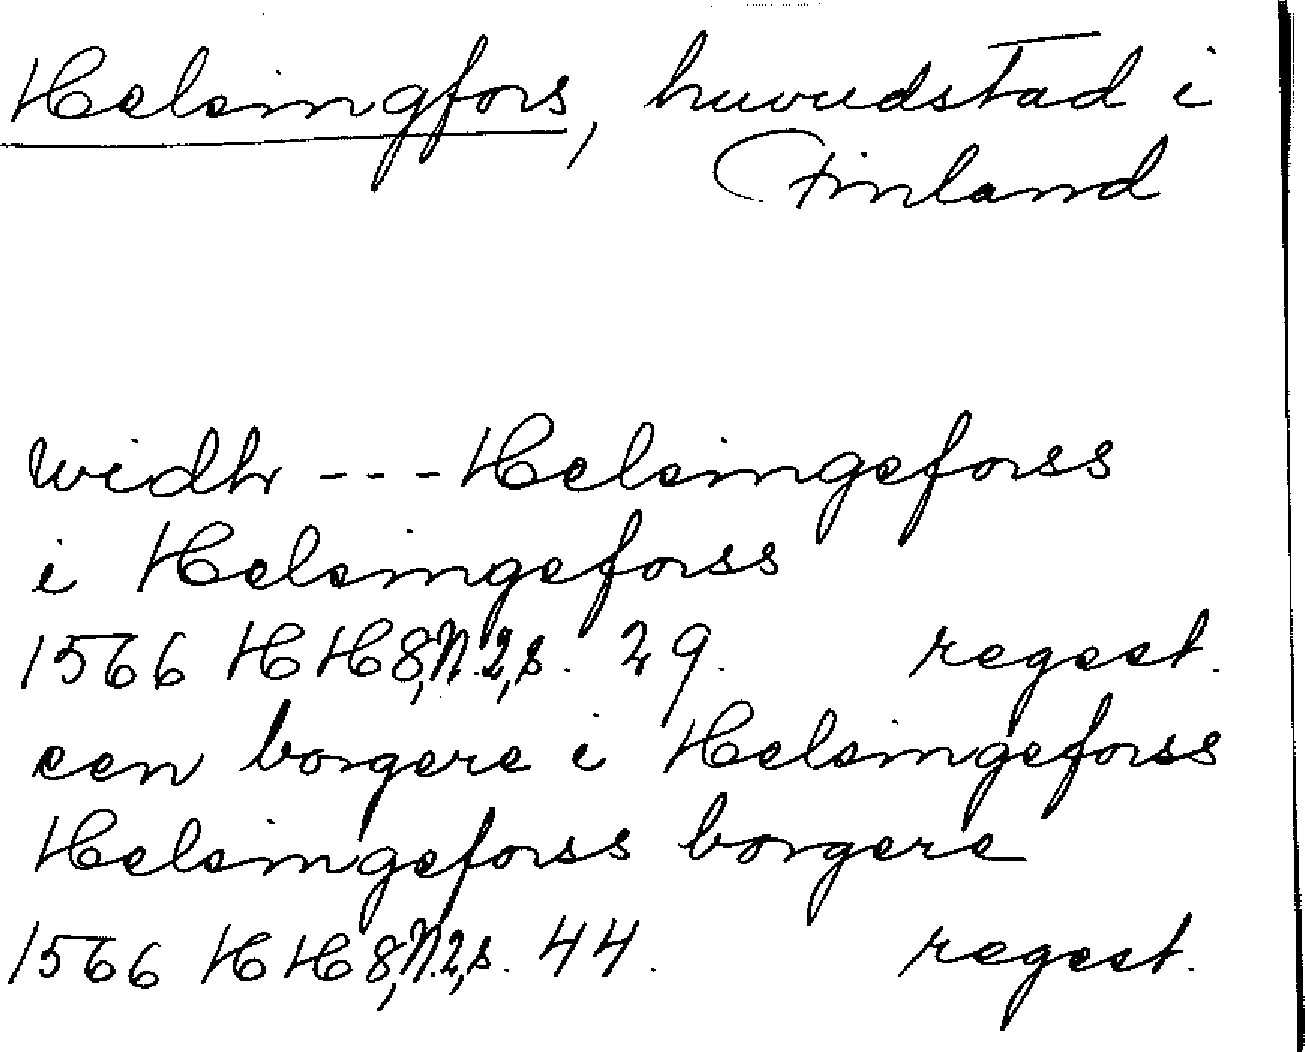 Helsingfors, huvudstad i
Finland
widhr --- Helsingeforss
i Helsingeforss
1566 HH 8, N. 2, s. 29. regest.
een borgere i Helsingeforss
Helsingeforss borgere
1566 HH 8, N. 2, s. 44. regest.